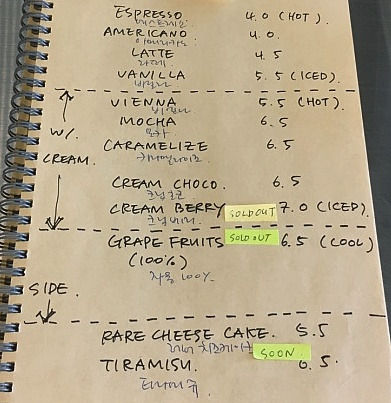 ESPRESSO 4.0 (HOT)
에스프레소
AMERICANO 4.0.
아메리카노
LATTE 4.5
라떼
VANILLA 5.5 (ICED).
바닐라
VIENNA 5.5 (HOT).
비엔나
MOCHA 6.5
모카
W/. CREAM.
CARAMELIZE 6.5
카라멜라이즈
CREAM CHOCO. 6.5
크림초코
CREAM BERRY SOLD OUT 7.0 (ICED).
크림베리
GRAPE FRUITS SOLD OUT 6.5 (COOL)
(100%)
자몽 100%
SIDE.
RARE CHEESE CAKE. 5.5
레어 치즈케이크
TIRAMISU. SOON 6.5.
티라미슈